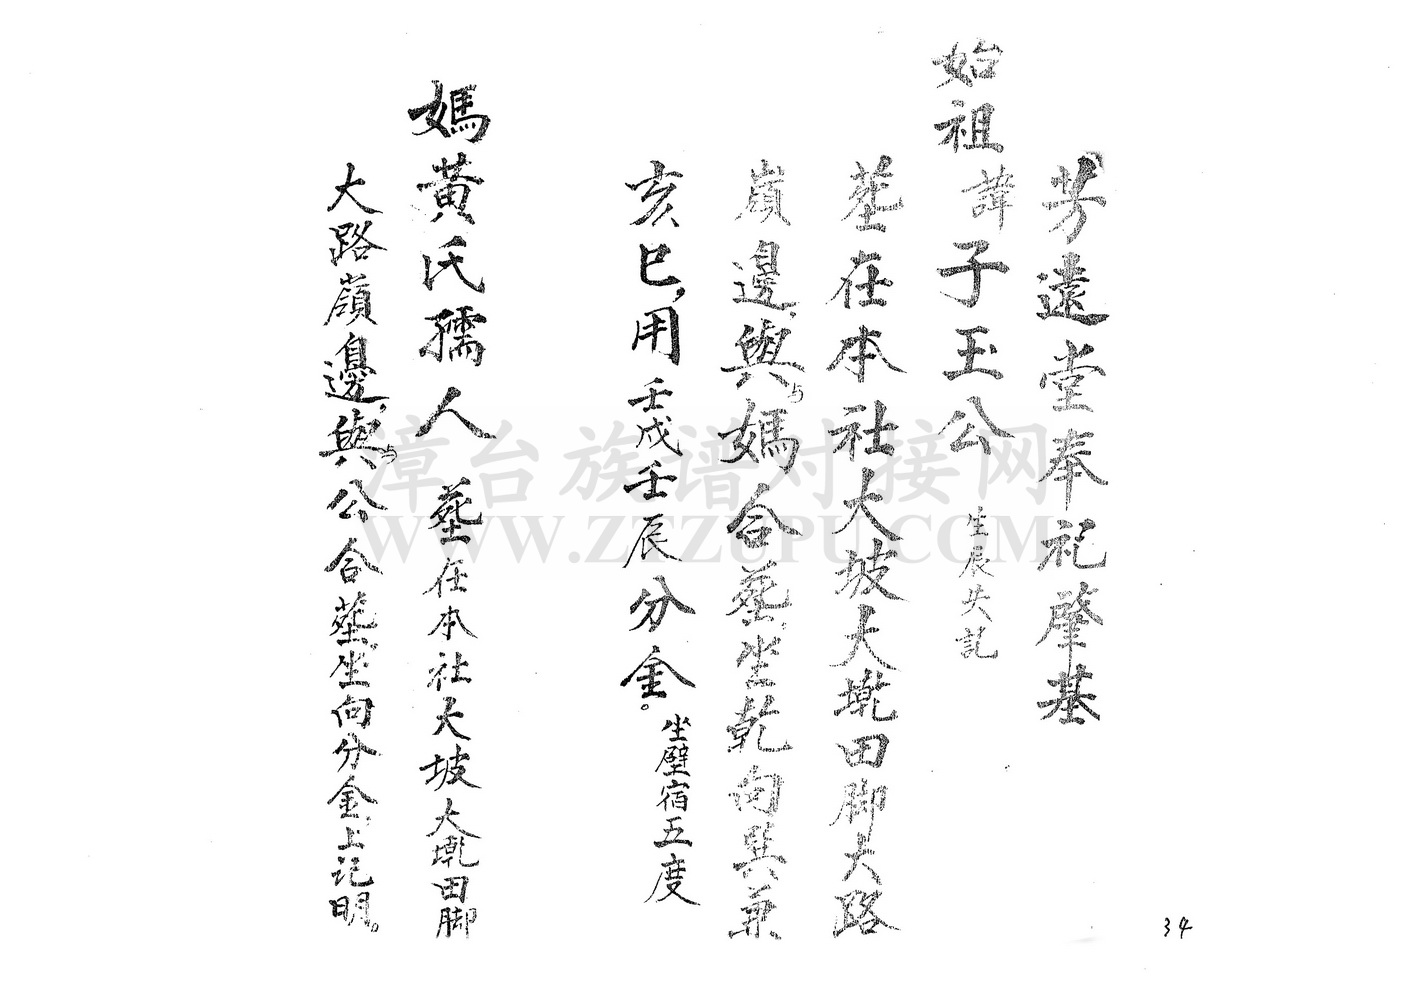 芳遠堂奉祀肇基
始祖諱子玉公 生辰失記
塟在本社大坡大墘田脚大路
嶺邊,與媽合塟,坐乾向巽兼
亥巳,用壬戌壬辰分金。坐壁宿五度
媽黃氏孺人 塟在本社大坡大墘田脚
大路嶺邊,與公合塟,坐向分金,上记明。
34
漳台族谱对接网
WWW.ZTZUPU.COM